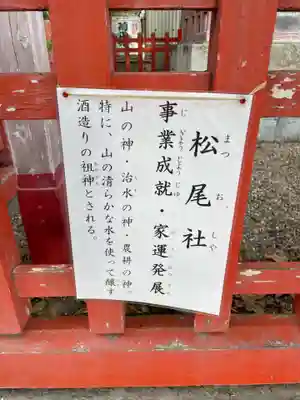 松尾社
まつおしゃ
事業成就・家運発展
じぎょうじょうじゅ
山の神・治水の神・農耕の神。
特に、山の清らかな水を使って醸す
酒造りの祖神とされる。